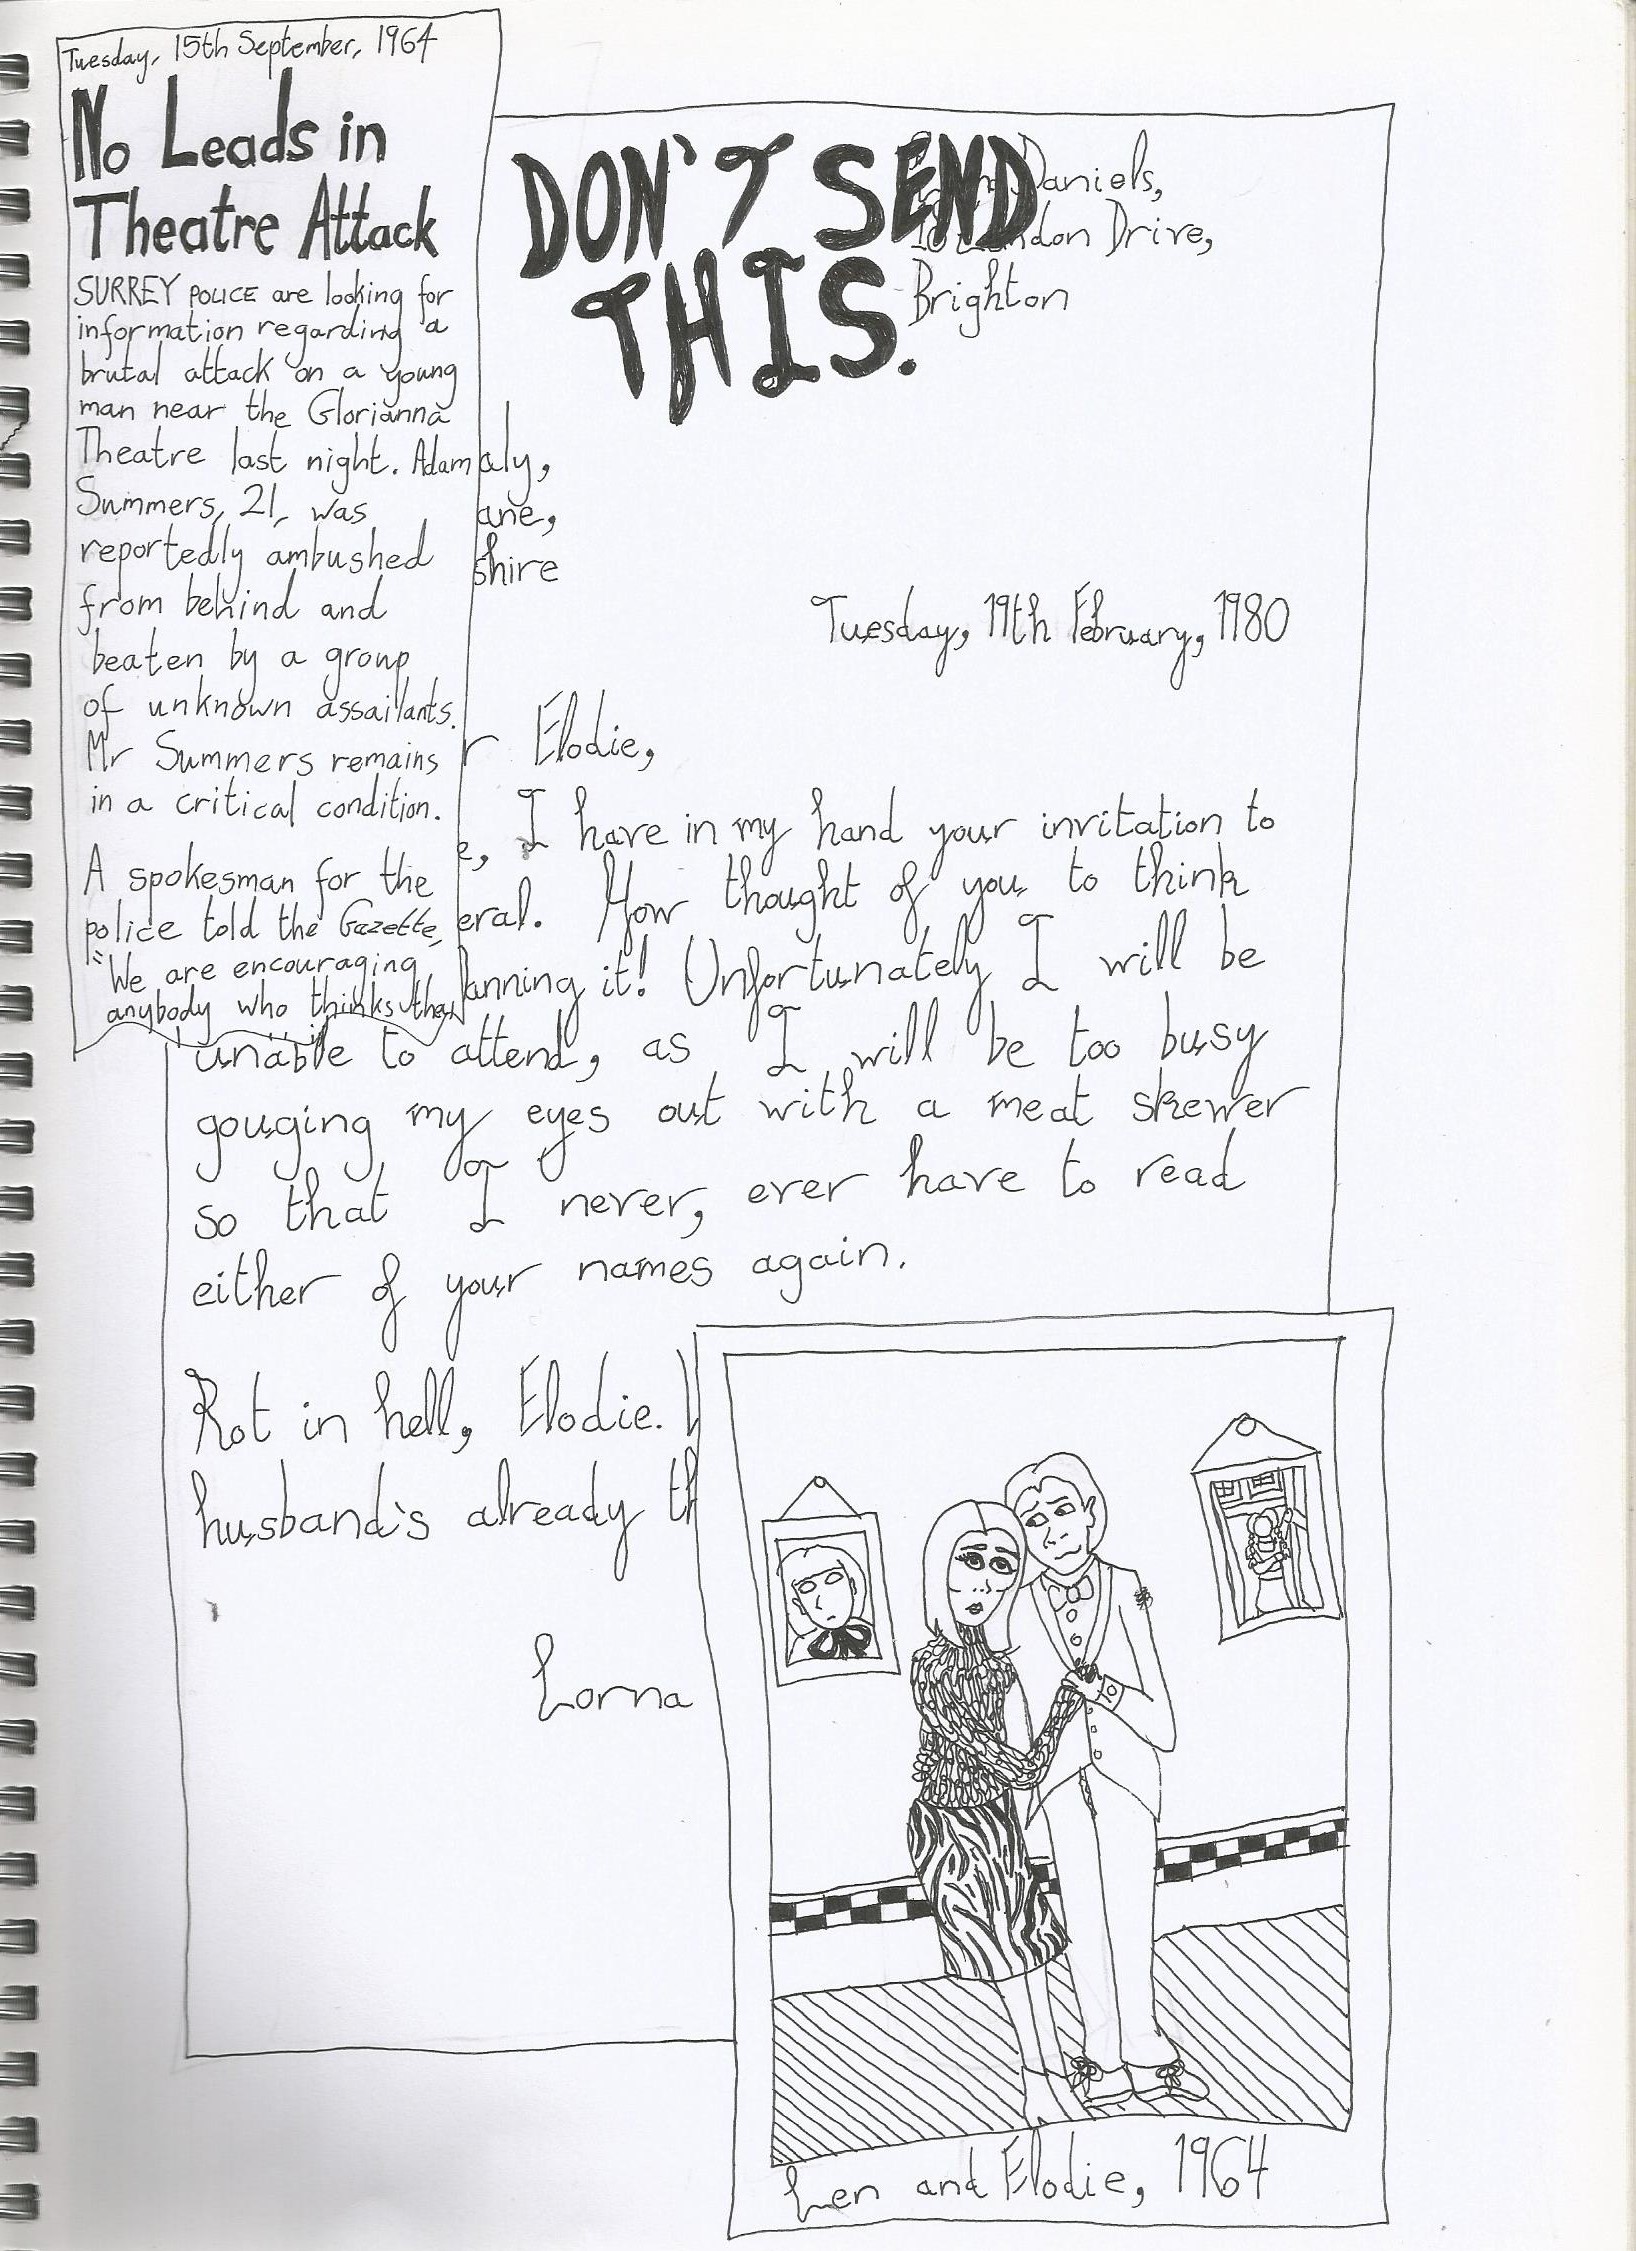 Tuesday, 15th September, 1964
No Leads in
Theatre Attack
SURREY POLICE are looking for
information regarding a
brutal attack on a young
man near the Glorianna
Theatre last night. Adam
Summers, 21, was
reportedly ambushed
from behind and
beaten by a group
of unknown assailants.
Mr Summers remains
in a critical condition.
A spokesman for the
police told the Gazette,
"We are encouraging
anybody who thinks they
DON'T SEND
THIS.
Daniels,
Drive,
Brighton
aly,
ane,
shire
Tuesday, 19th February, 1980
r Elodie,
e, I have in my hand your invitation to
eral. How thought of you to think
lanning it! Unfortunately I will be
unable to attend, as I will be too busy
gouging my eyes out with a meat skewer
so that I never, ever have to read
either of your names again.
Rot in hell, Elodie.
husband's already th
Lorna
Len and Elodie, 1964